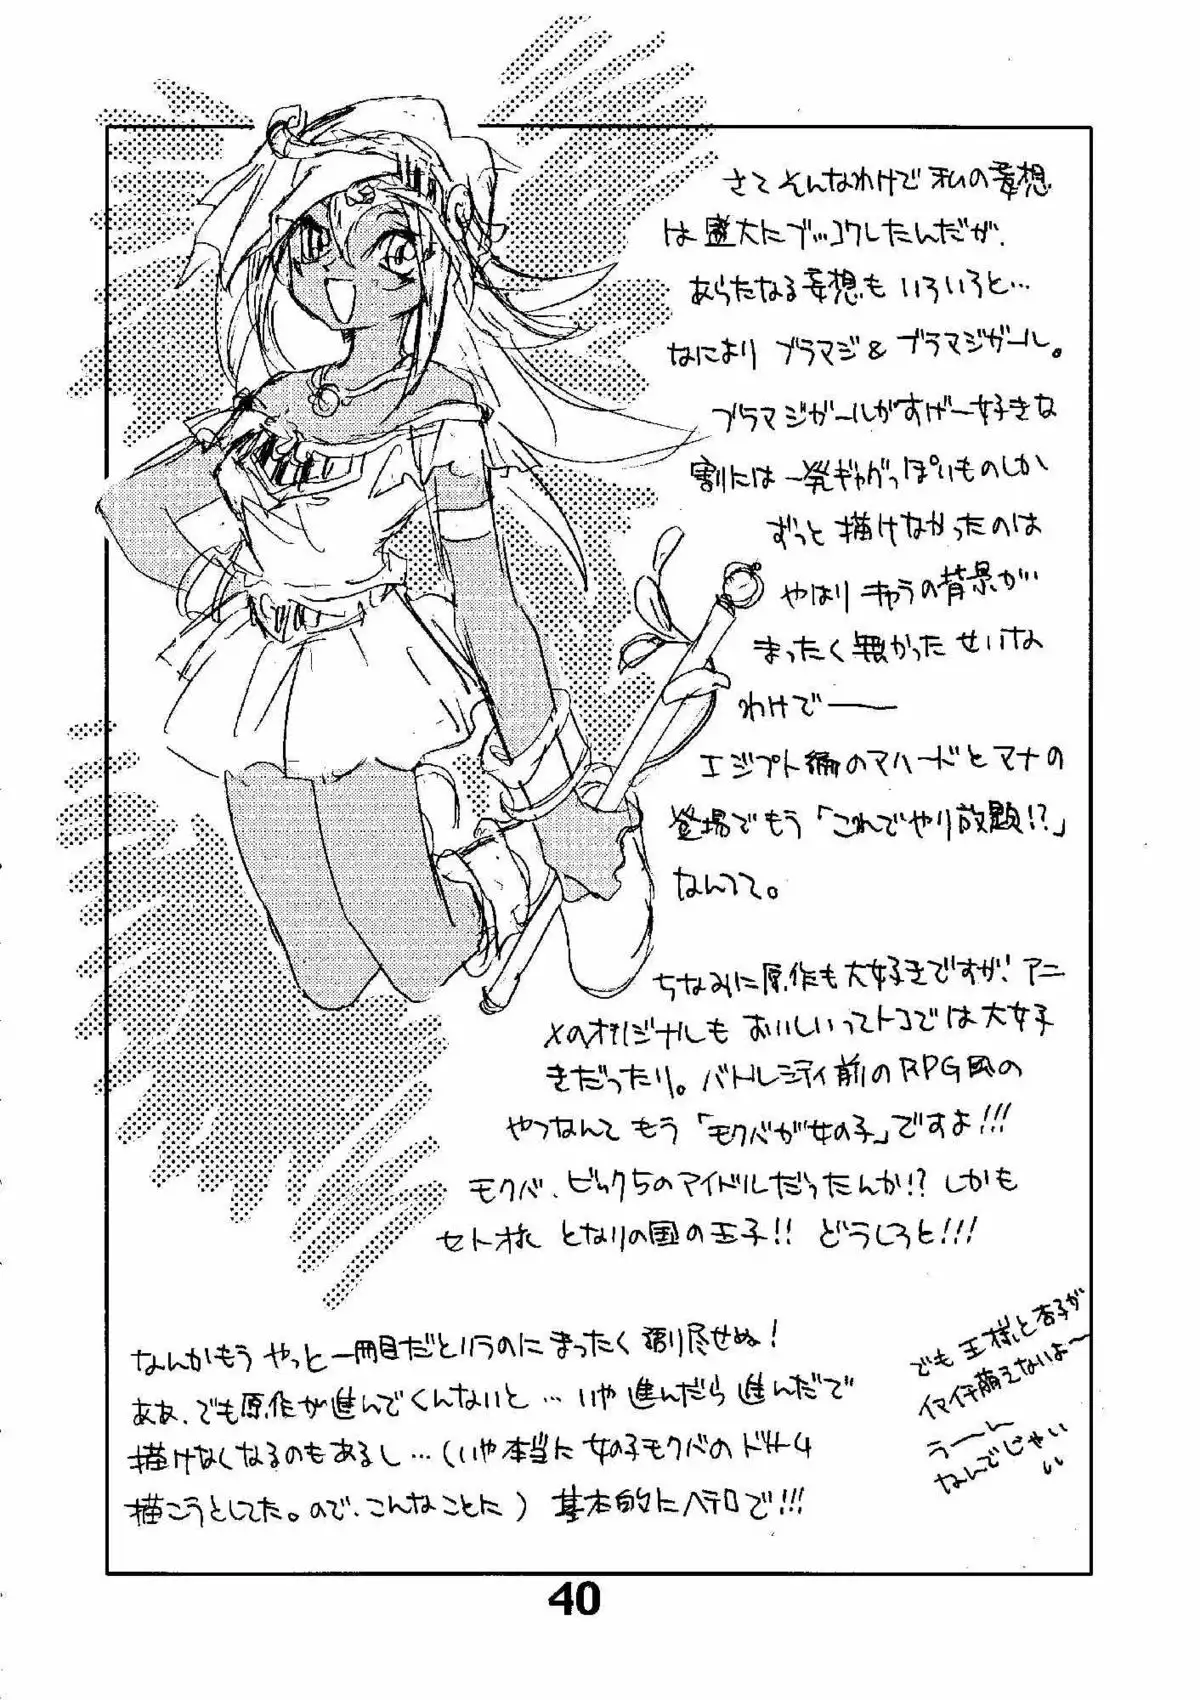 さてそんなわけで私の妄想
は盛大にブッコワしたんだが、
あらたなる妄想もいろいろと…
なにより ブラマジ&ブラマジガール。
ブラマジガールがすげー好きな
割には一発ギャグっぽいものしか
ずっと描けなかったのは
やはりキャラの背景が
まったく無かったせいな
わけで――
エジプト編のマハードとマナの
登場でもう「これでやり放題!?」
なんてて。
ちなみに原作も大好きですが、アニ
メのオリジナルもおいしいってトコでは大好
きだったり。バトルシティ前のRPG風の
やつなんてもう「モクバが女の子」ですよ!!!
モクバ、ビック5のアイドルだったんか!? しかも
セト様 となりの国の王子!! どうしろと!!!
なんかもう やっと一冊目だというのにまったく語り尽せぬ!
ああ、でも原作が進んでくんないと… いや進んだら進んだで
描けなくなるのもあるし…(いや本当に女の子モクバの
描こうとしてた。ので、こんなことに) 基本的にヘテロで!!!
でも王様と杏子が
イマイチ萌えないよ〜
うーん
なんでじゃい
い
40